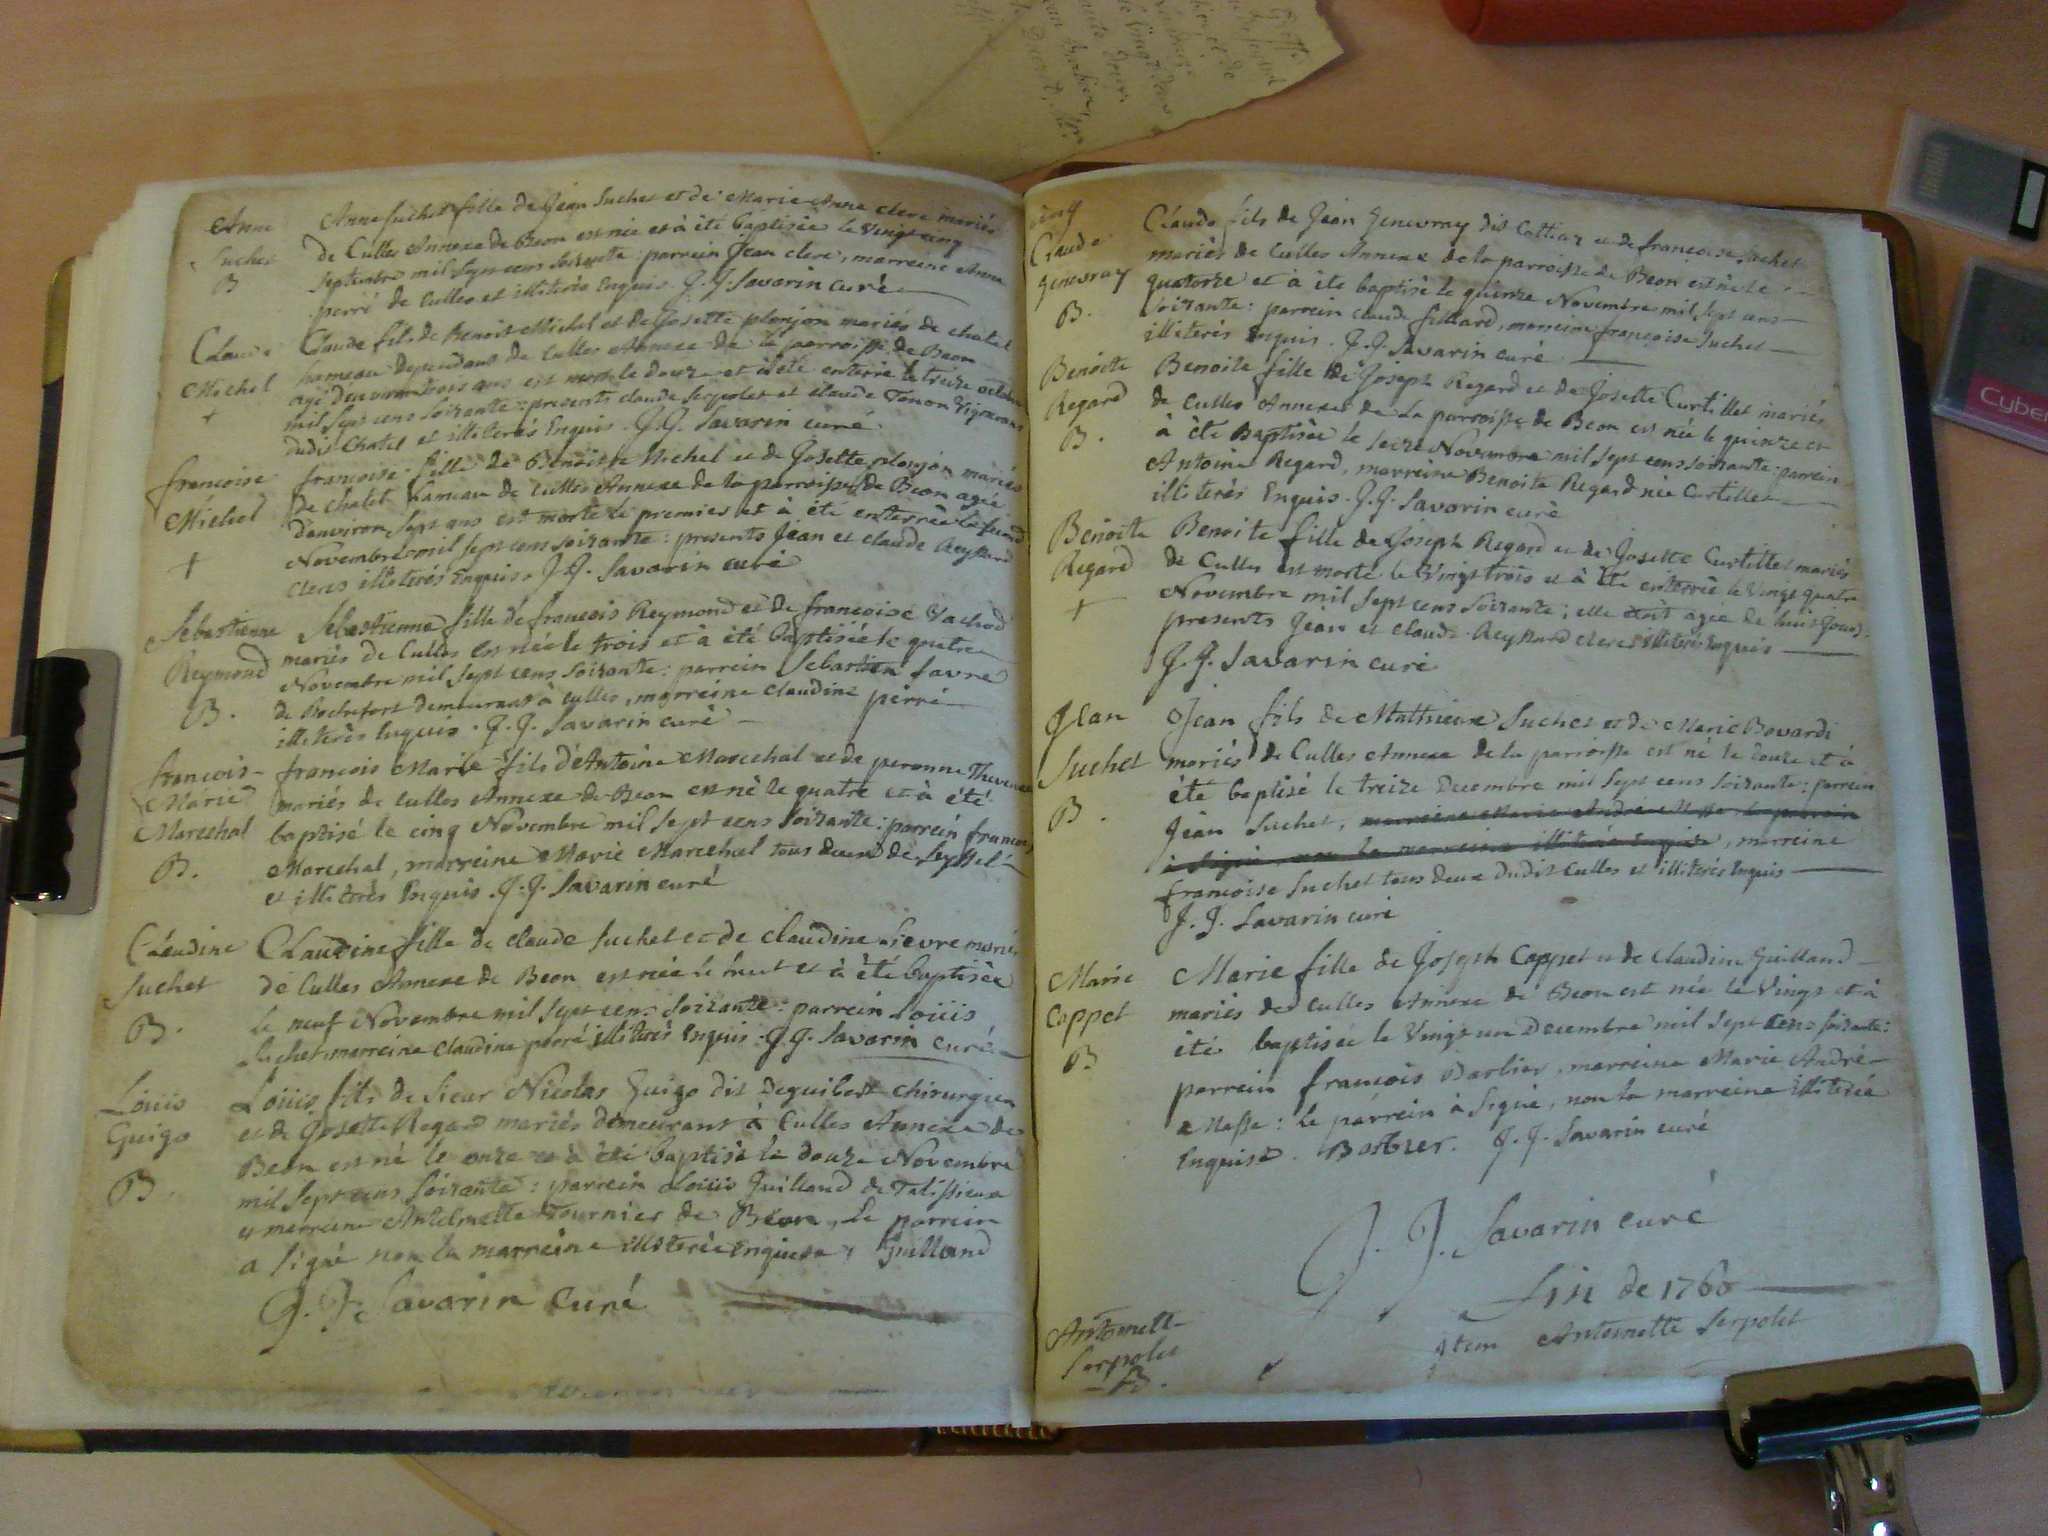 Anne
Suchet
B
Anne Suchet fille de Jean Suchet et de Marie Anne clerc mariés
de Culles Annexe de Beon est née et à été baptisée le Vingt cinq
Septembre mil Sept cens Soixante : parrein Jean clerc, marreine Anne
perré de Culles et illiterés Enquis. J. J. Savarin curé
Claude
Michel
+
Claude fils de Benoit Michel et de Josette plonjon mariés de chatel
hameau dependant de Culles Annexe de la parroisse de Beon
agé d'environ trois ans est mort le douze et à été enterré le treize octobre
mil Sept cens Soixante : presents claude Serpolet et claude Tenon Vignerons
dudit Chatel et illiterés Enquis. J. J. Savarin curé
francoise
Michel
+
francoise fille de Benoit Michel et de Josette plonjon mariés
de chatel hameau de Culles Annexe de la parroisse de Beon agée
d'environ Sept ans est morte le premier et à été enterrée le second
Novembre mil Sept cens Soixante : presents Jean et claude Reymond
clercs illiterés Enquis. J. J. Savarin curé
Sebastienne
Reymond
B.
Sebastienne fille de francois Reymond et de francoise Vachod
mariés de Culles est née le trois et à été baptisée le quatre
Novembre mil Sept cens Soixante : parrein Sebastien favre
de Rochefort demeurant à Culles, marreine claudine perré
illiterés Enquis. J. J. Savarin curé
francois
Marie
Marechal
B.
francois Marie fils d'Antoine Marechal et de peronne
mariés de Culles Annexe de Beon est né le quatre et à été
baptisé le cinq Novembre mil Sept cens Soixante : parrein francois
Marechal, marreine Marie Marechal tous deux de Seyssel
et illiterés Enquis. J. J. Savarin curé
Claudine
Suchet
B.
Claudine fille de claude Suchet et de claudine Lievre mariés
de Culles Annexe de Beon est née le huit et à été baptisée
le neuf Novembre mil Sept cens Soixante : parrein Loüis
Suchet marreine claudine perré illiterés Enquis : J. J. Savarin curé
Loüis
Guigo
B.
Loüis fils de Sieur Nicolas Guigo dit Deguibert chirurgien
et de Josette Regard mariés demeurant à Culles Annexe de
Beon est né le onze et à été baptisé le douze Novembre
mil Sept cens Soixante : parrein Loüis Guilland de Talissieux
et marreine Antelmette Tournier de Beon, le parrein
a Signé non la marreine illiterée Enquise, Guilland
J. J. Savarin Curé
Claude
Genevray
B.
Claude fils de Jean Genevray dit Cottiar et de francoise Suchet
mariés de Culles Annexe de la parroisse de Beon est né le
quatorze et à été baptisé le quinze Novembre mil Sept cens
Soixante : parrein claude filliard, marreine francoise Suchet
illiterés Enquis. J. J. Savarin curé
Benoite
Regard
B.
Benoite fille de Joseph Regard et de Josette Curtillet mariés
de Culles Annexe de La parroisse de Beon est née le quinze et
à été Baptisée le Seize Novembre mil Sept cens soixante : parrein
Antoine Regard, marreine Benoite Regard née Curtillet
illiterés Enquis. J. J. Savarin curé
Benoite
Regard
+
Benoite fille de Joseph Regard et de Josette Curtillet mariés
de Culles est morte le Vingt trois et à été enterrée le Vingt quatre
Novembre mil Sept cens Soixante ; elle étoit agée de huit Jours,
presents Jean et claude Reymond clercs illiterés Enquis
J. J. Savarin curé
Jean
Suchet
B.
Jean fils de Mathieux Suchet et de Marie Bovardi
mariés de Culles Annexe de la parroisse est né le Douze et à
été baptisé le treize Decembre mil Sept cens Soixante : parrein
Jean Suchet, marreine Marie André Masse le parrein
à Signé, non la marreine illiterée Enquise, marreine
francoise Suchet tous deux dudit Culles et illiterés Enquis
J. J. Savarin curé
Marie
Coppet
B
Marie fille de Joseph Coppet et de Claudine Guilland
mariés de Culles Annexe de Beon est née le Vingt et à
été baptisée le Vingt un Decembre mil Sept cens Soixante :
parrein francois Barbier, marreine Marie André
Masse : le parrein à Signé, non la marreine illiterée
Enquise. Barbier. J. J. Savarin curé
J. J. Savarin curé
Fin de 1760
Antoinette
Serpolet
B.
Item Antoinette Serpolet
Cyber